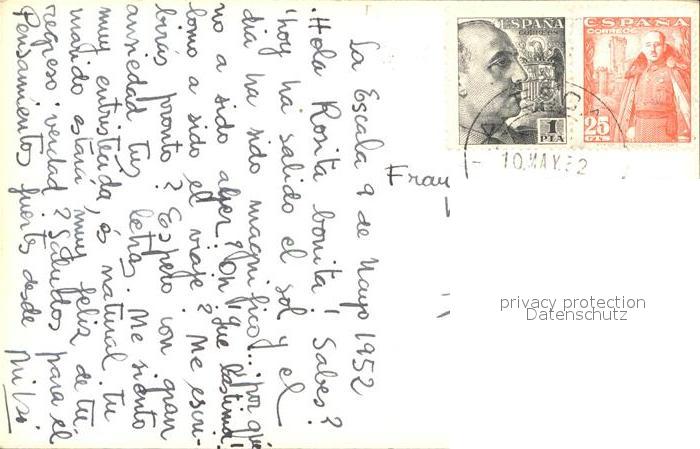 La Escala 9 de Mayo 1952
¡Hola Rosita bonita! Sabes?
¡hoy ha salido el sol y el
dia ha sido magnifico,... ¡por qué
no a sido ayer? Oh! que lastima!
como a sido el viaje? Me escri-
birás pronto? Espero con gran
ansiedad tus letras. Me siento
muy entristecida, es natural. tu
marido estará muy feliz de tu
regreso. verdad? Saluddos para el
Pensamientos fuertes desde
ESPAÑA
CORREOS
1
PTA
ESPAÑA
CORREOS
25
CTS.
10.MAY.52
Frau
privacy protection
Datenschutz